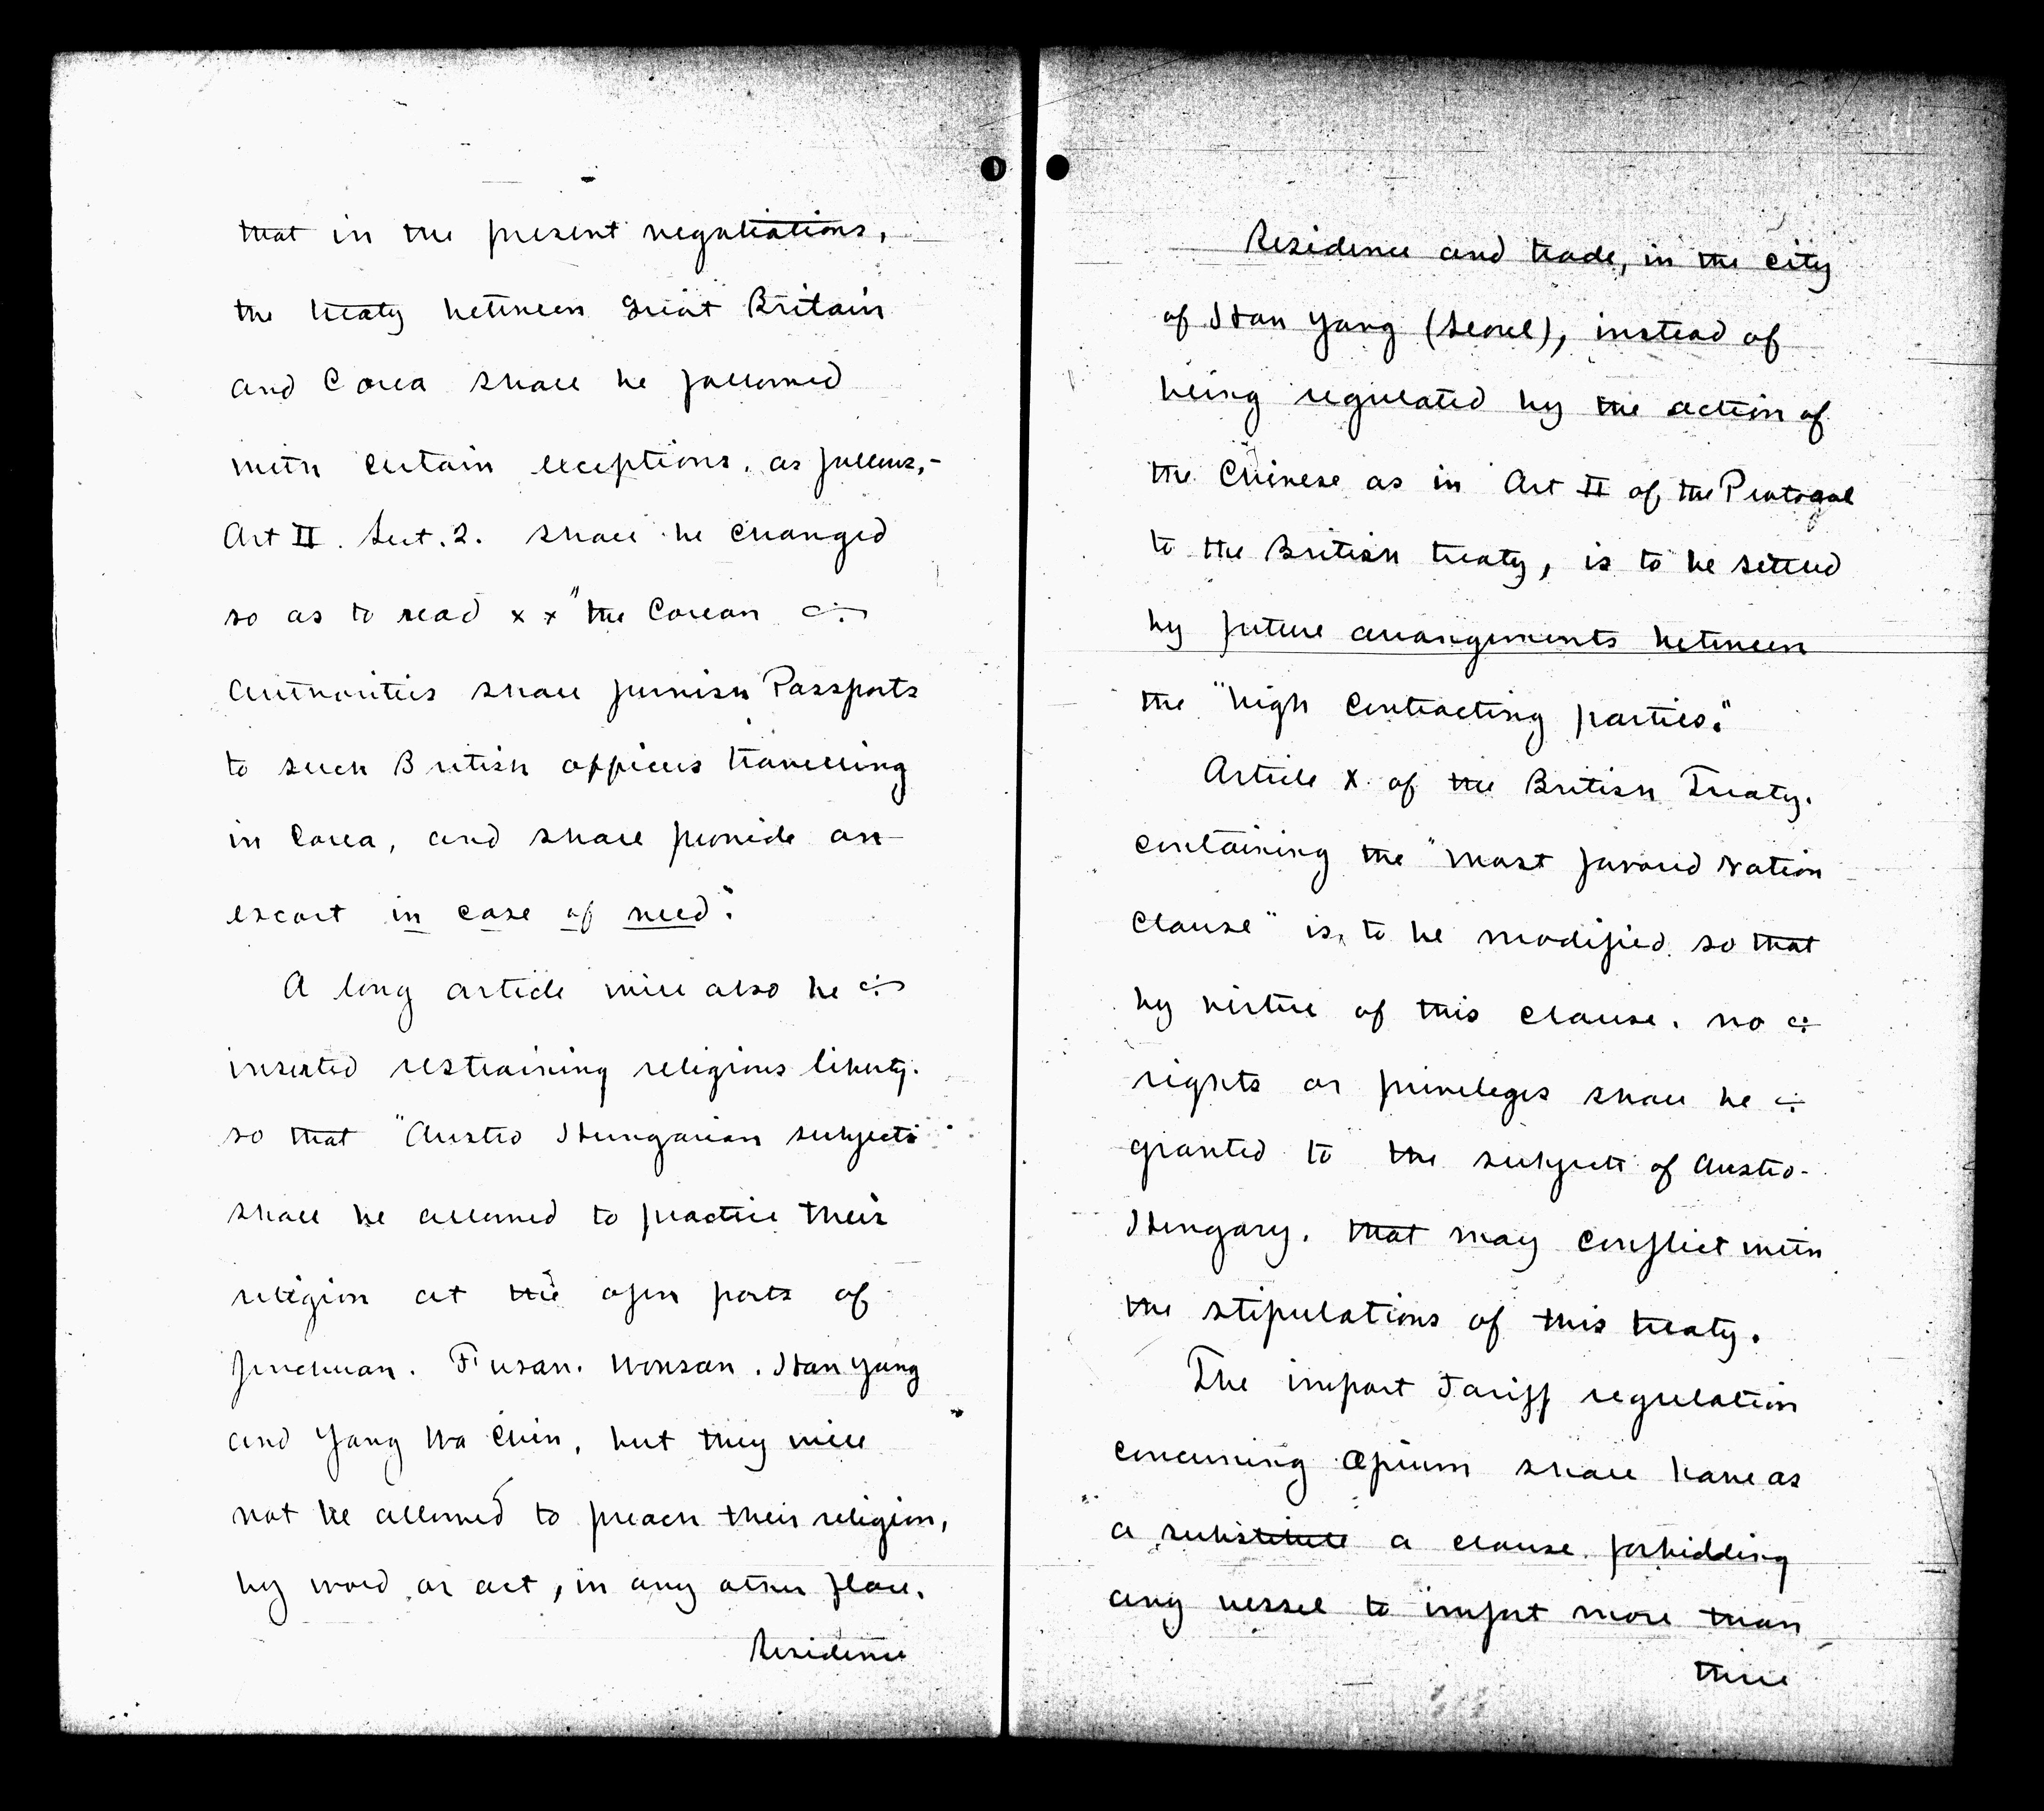 that in the present negotiations,
the treaty between Great Britain
and Corea shall be followed
with certain exceptions, as follows,-
Art II. Sect. 2. shall be changed
so as to read x x "the Corean
Authorities shall furnish Passports
to such British officers travelling
in Corea, and shall provide an
escort in case of need".
A long article will also be
inserted restraining religious liberty.
so that "Austro Hungarian subjects
shall be allowed to practice their
religion at the open ports of
Jinchuan. Fusan. Wonsan. Han Yang
and Yang Wa Chin, but they will
not be allowed to preach their religion,
by word or act, in any other place.
Residence
Residence and trade, in the city
of Han Yang (Seoul), instead of
being regulated by the action of
the Chinese as in Art II of the Protogol
to the British treaty, is to be settled
by future arrangements between
the "high contracting parties".
Article X. of the British Treaty.
containing the "most favored Nation
Clause" is, to be modified so that
by virtue of this clause. no
rights or privileges shall be
granted to the subjects of Austro-
Hungary. that may conflict with
the stipulations of this treaty.
The import Tariff regulation
concerning Opium shall have as
a substitute a clause forbidding
any vessel to import more than
three